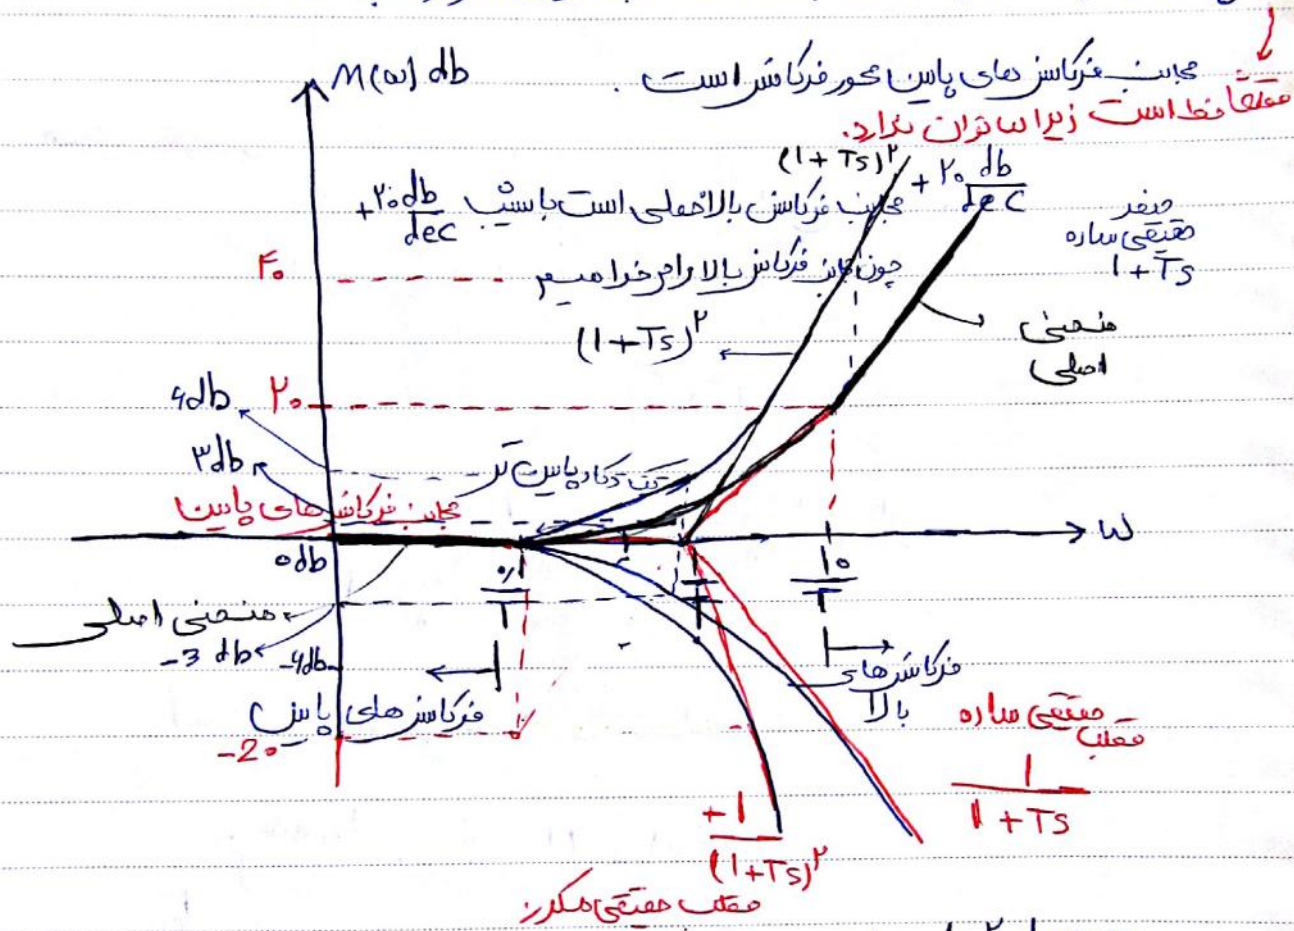 M(ω) db
مجانب فرکانس های پایین محور فرکانس است .
فقط است زیرا توان ندارد.
(1 + Ts)^۲
+۲۰ db/dec
مجانب فرکانس بالا خطی است با شیب +۲۰ db/dec
صفر
حقیقی ساده
1+Ts
۴۰
چون مجانب فرکانس بالا را
(1+Ts)^۲
منحنی
اصلی
۲۰
۶db
۳db
یک دکاد پایین تر
مجانب فرکانس های پایین
ω
۰db
۰/۱/T
1/T
۱۰/T
منحنی اصلی
-3 db
-۶db
فرکانس های پایین
فرکانس های
بالا
-2۰
قطب حقیقی ساده
1/(1 + Ts)
+1/(1+Ts)^۲
قطب حقیقی مکرر